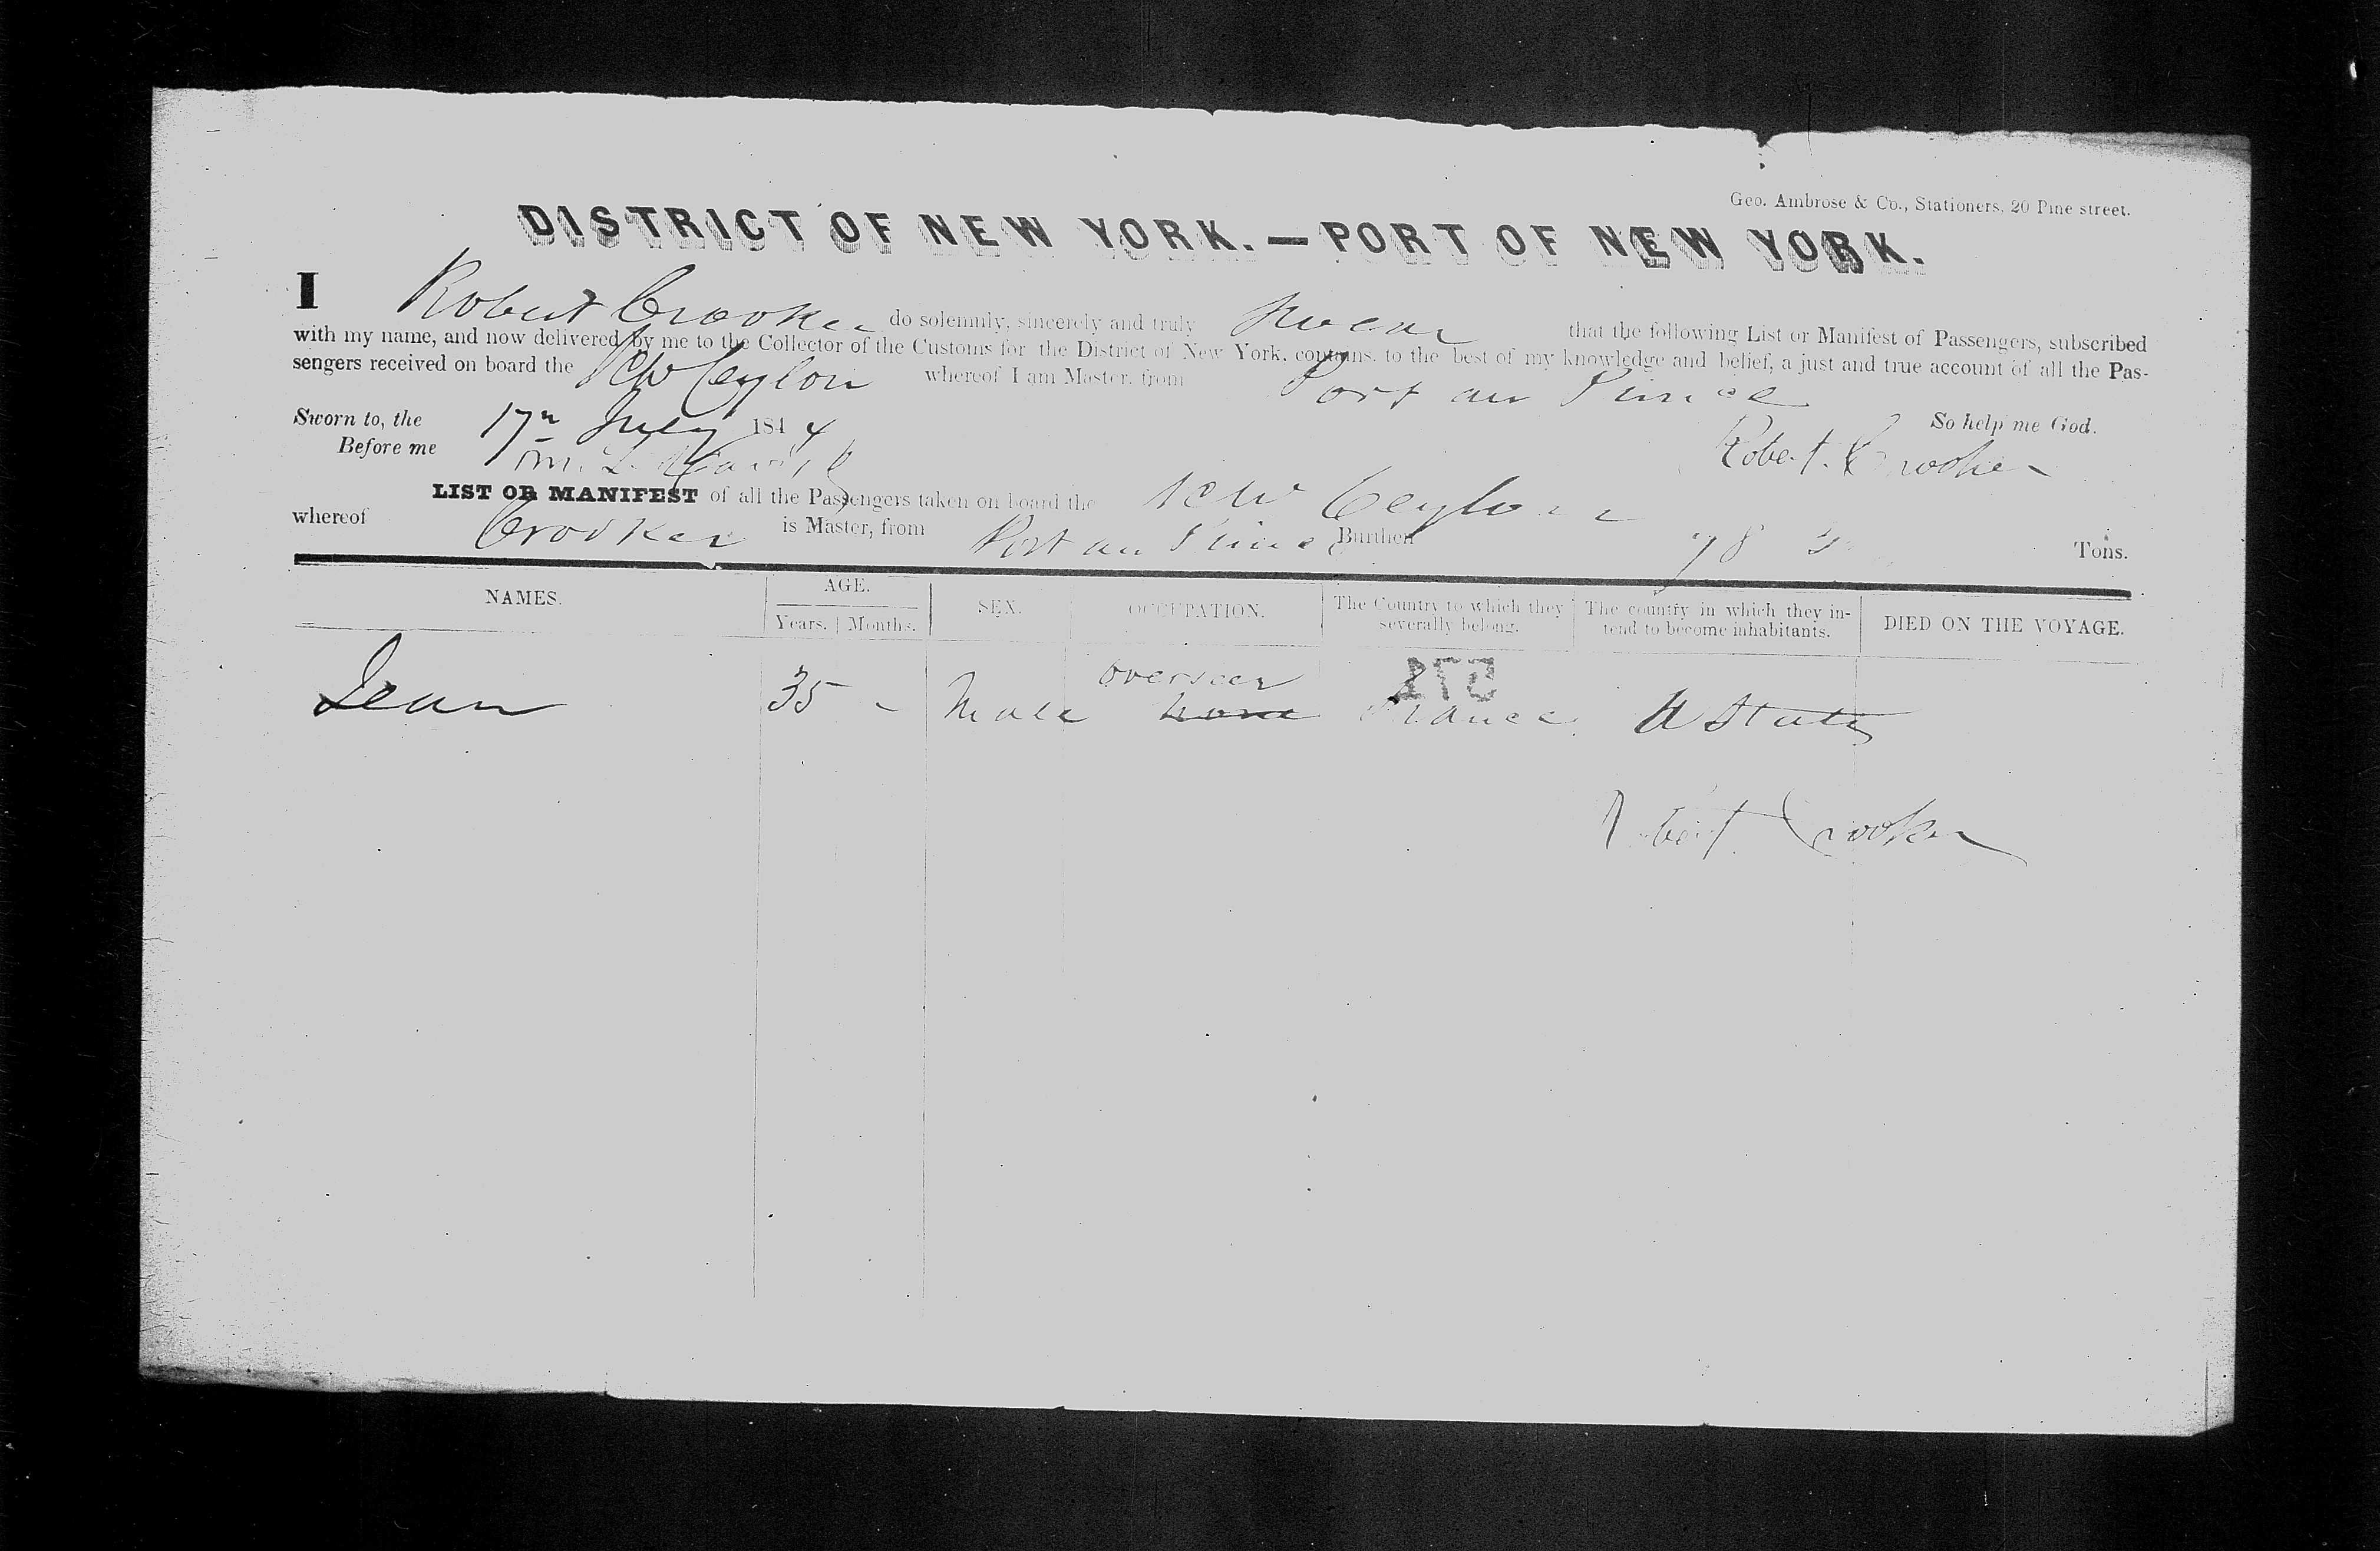 Geo. Ambrose & Co., Stationers, 20 Pine street.
DISTRICT OF NEW YORK.—PORT OF NEW YORK.
I Robert Crooker do solemnly, sincerely and truly swear that the following List or Manifest of Passengers, subscribed
with my name, and now delivered by me to the Collector of the Customs for the District of New York, contains, to the best of my knowledge and belief, a just and true account of all the Pas-
sengers received on board the Schr Ceylon whereof I am Master, from Port au Prince
Sworn to, the 17th July 1844 So help me God.
Before me Robert Crooker
LIST OR MANIFEST of all the Passengers taken on board the Schr Ceylon
whereof Crooker is Master, from Port au Prince Burthen 78 Tons.
NAMES. AGE. Years. Months. SEX. OCCUPATION. The Country to which they severally belong. The country in which they intend to become inhabitants. DIED ON THE VOYAGE.
overseer
Jean 35 - Male none France U States
Robert Crooker